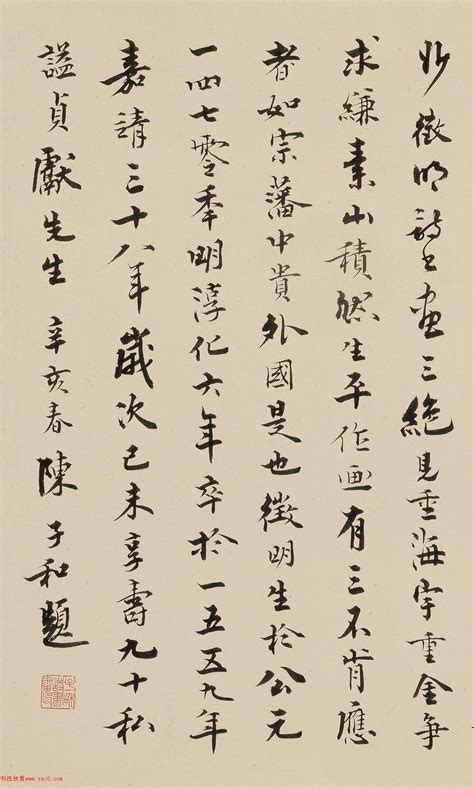 妙徵明詩書畫三絕見重海宇重金爭
求縑素山積然生平作画有三不肯應
者如宗藩中貴外國是也徵明生於公元
一四七零秊明淳化六年卒於一五五九年
嘉靖三十八年歲次己未享壽九十私
諡貞獻先生 辛亥春 陳子和題
书法欣赏www.yac8.com